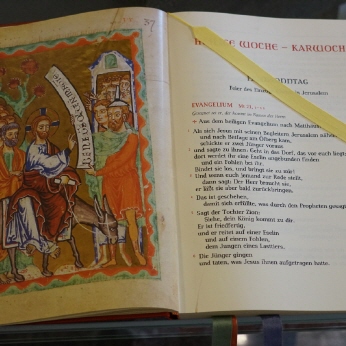 37
WOCHE – KARWOCH
Feier des Jerusalem
EVANGELIUM Mt 21, 1–11
+ Aus dem heiligen Evangelium nach Matthäus
Als sich Jesus mit seinen Begleitern Jerusalem näherte
und nach Betfage am Ölberg kam,
schickte er zwei Jünger voraus
und sagte zu ihnen: Geht in das Dorf, das vor euch liegt;
dort werdet ihr eine Eselin angebunden finden
und ein Fohlen bei ihr.
Bindet sie los, und bringt sie zu mir!
Und wenn euch jemand zur Rede stellt,
dann sagt: Der Herr braucht sie,
er läßt sie aber bald zurückbringen.
Das ist geschehen,
damit sich erfüllte, was durch den Propheten gesagt
Sagt der Tochter Zion:
Siehe, dein König kommt zu dir.
Er ist friedfertig,
und er reitet auf einer Eselin
und auf einem Fohlen,
dem Jungen eines Lasttiers.
Die Jünger gingen
und taten, was Jesus ihnen aufgetragen hatte.